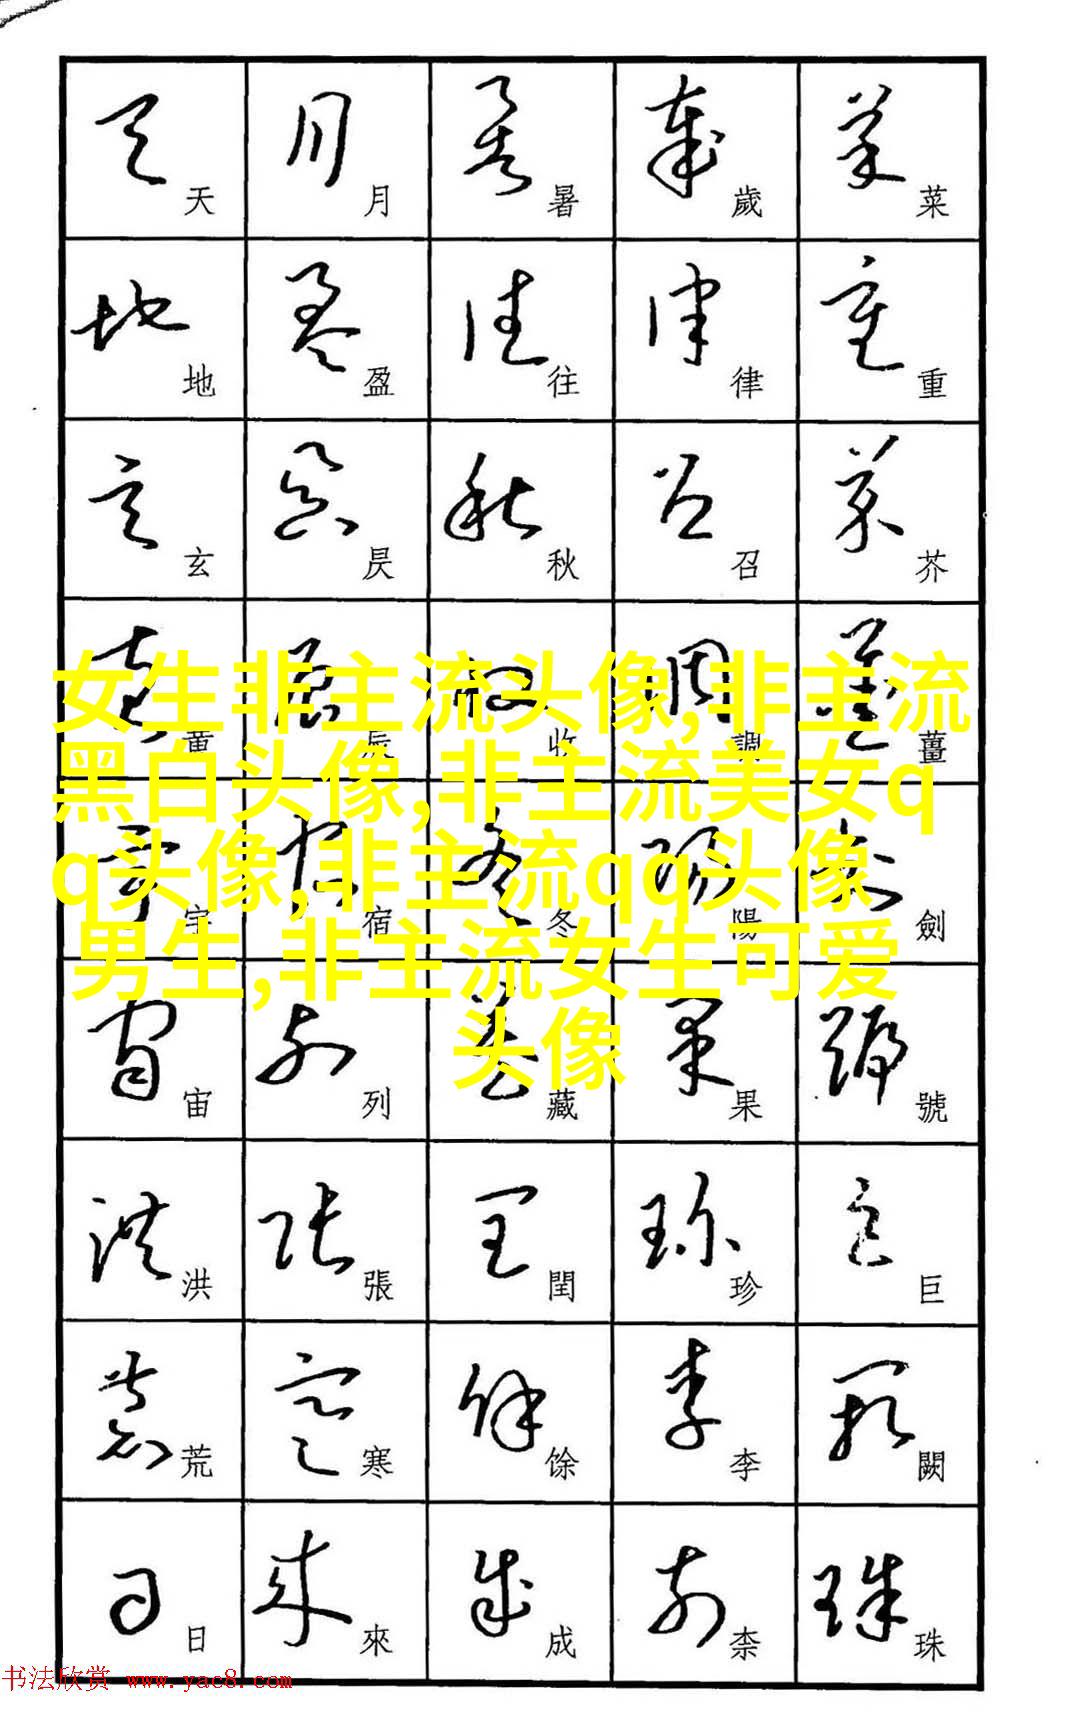 天 月 暑 歲 菜
地 盈 往 律 重
玄 昃 秋 召 芥
黃 辰 收 調 薑
女生非主流头像,非主流
黑白头像,非主流美女q
q头像,非主流qq头像
男生,非主流女生可爱
头像
宇 宿 冬 陽 劍
宙 列 藏 果 號
洪 張 閏 珍 巨
荒 寒 馀 李 闕
日 來 成 柰 珠
书法欣赏 www.yac8.com